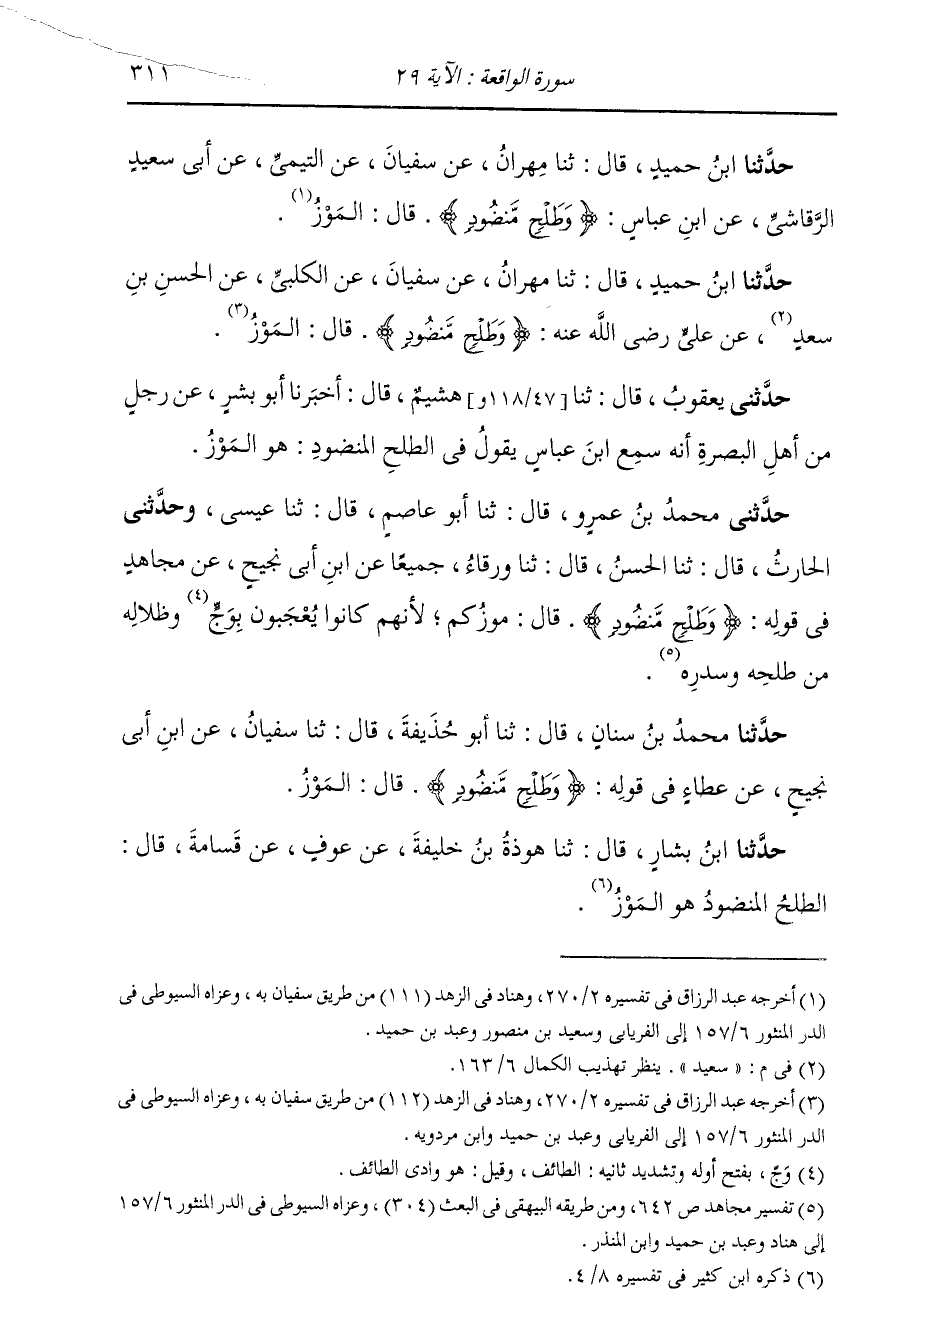 سورة الواقعة : الآية ٢٩
٣١١
حدَّثنا ابنُ حميدٍ ، قال : ثنا مِهرانُ ، عن سفيانَ ، عن التيمىِّ ، عن أبى سعيدٍ
الرَّقاشىِّ ، عن ابنِ عباسٍ : ﴿ وَطَلْحٍ مَّنضُودٍ ﴾ . قال : الـمَوْزُ(١) .
حدَّثنا ابنُ حميدٍ ، قال : ثنا مهرانُ ، عن سفيانَ ، عن الكلبىِّ ، عن الحسنِ بنِ
سعدٍ(٢) ، عن علىٍّ رضى اللَّه عنه : ﴿ وَطَلْحٍ مَّنضُودٍ ﴾ . قال : الـمَوْزُ(٣) .
حدَّثنى يعقوبُ ، قال : ثنا [١١٨/٤٧و] هشيمٌ ، قال : أخبَرنا أبو بشرٍ ، عن رجلٍ
من أهلِ البصرةِ أنه سمِع ابنَ عباسٍ يقولُ فى الطلحِ المنضودِ : هو الـمَوْزُ .
حدَّثنى محمدُ بنُ عمرٍو ، قال : ثنا أبو عاصمٍ ، قال : ثنا عيسى ، وحدَّثنى
الحارثُ ، قال : ثنا الحسنُ ، قال : ثنا ورقاءُ ، جميعًا عن ابنِ أبى نجيحٍ ، عن مجاهدٍ
فى قولِه : ﴿ وَطَلْحٍ مَّنضُودٍ ﴾ . قال : موزُكم ؛ لأنهم كانوا يُعْجَبون بِوَجٍّ(٤) وظلالِه
من طلحِه وسدرِه(٥) .
حدَّثنا محمدُ بنُ سنانٍ ، قال : ثنا أبو حُذَيفةَ ، قال : ثنا سفيانُ ، عن ابنِ أبى
نجيحٍ ، عن عطاءٍ فى قولِه : ﴿ وَطَلْحٍ مَّنضُودٍ ﴾ . قال : الـمَوْزُ .
حدَّثنا ابنُ بشارٍ ، قال : ثنا هوذةُ بنُ خليفةَ ، عن عوفٍ ، عن قَسامةَ ، قال :
الطلحُ المنضودُ هو الـمَوْزُ(٦) .
(١) أخرجه عبد الرزاق فى تفسيره ٢٧٠/٢، وهناد فى الزهد (١١١) من طريق سفيان به ، وعزاه السيوطى فى
الدر المنثور ١٥٧/٦ إلى الفريابى وسعيد بن منصور وعبد بن حميد .
(٢) فى م : « سعيد » . ينظر تهذيب الكمال ١٦٣/٦.
(٣) أخرجه عبد الرزاق فى تفسيره ٢٧٠/٢، وهناد فى الزهد (١١٢) من طريق سفيان به ، وعزاه السيوطى فى
الدر المنثور ١٥٧/٦ إلى الفريابى وعبد بن حميد وابن مردويه .
(٤) وَجّ ، بفتح أوله وتشديد ثانيه : الطائف ، وقيل : هو وادى الطائف .
(٥) تفسير مجاهد ص ٦٤٢، ومن طريقه البيهقى فى البعث (٣٠٤) ، وعزاه السيوطى فى الدر المنثور ١٥٧/٦
إلى هناد وعبد بن حميد وابن المنذر .
(٦) ذكره ابن كثير فى تفسيره ٤/٨.